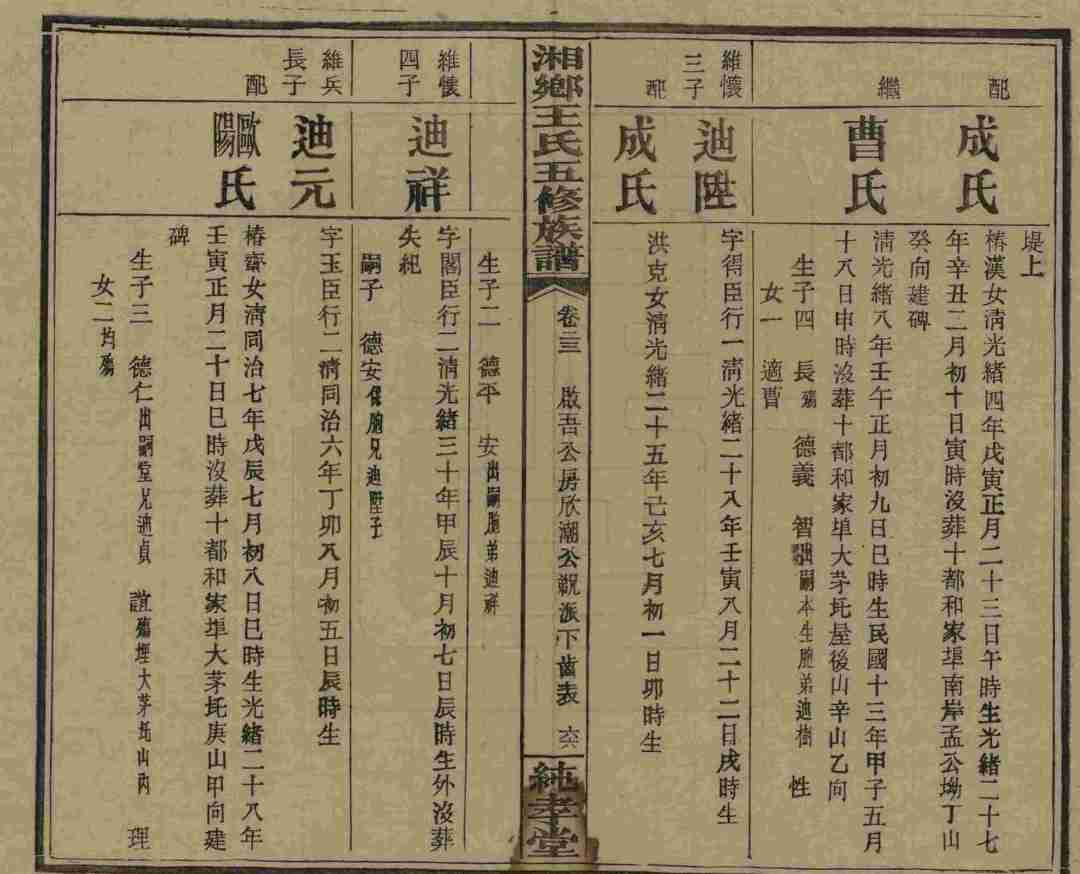 堤上
配
成氏
椿漢女清光緒四年戊寅正月二十三日午時生光緒二十七
年辛丑二月初十日寅時沒葬十都和家埠南岸孟公坳丁山
癸向建碑
繼
曹氏
清光緒八年壬午正月初九日巳時生民國十三年甲子五月
十八日申時沒葬十都和家埠大茅坉屋後山辛山乙向
生子四 長殤 德義 智出嗣本生胞弟迪樹 性
女一 適曹
維懷
三子
迪陞
字得臣行一清光緒二十八年壬寅八月二十二日戌時生
配
成氏
洪克女清光緒二十五年己亥七月初一日卯時生
湘鄉王氏五修族譜
卷三三 啟吾公房欣潮公派下齒表 六
純孝堂
生子二 德平 安出嗣胞弟迪祥
維懷
四子
迪祥
字閣臣行二清光緒三十年甲辰十月初七日辰時生外沒葬
失紀
嗣子 德安係胞兄迪陞子
維兵
長子
迪元
字玉臣行二清同治六年丁卯八月初五日辰時生
配
歐陽氏
椿齋女清同治七年戊辰七月初八日巳時生光緒二十八年
壬寅正月二十日巳時沒葬十都和家埠大茅坉庚山甲向建
碑
生子三 德仁出嗣堂兄迪貞 誼殤埋大茅坉山內 理
女二均殤